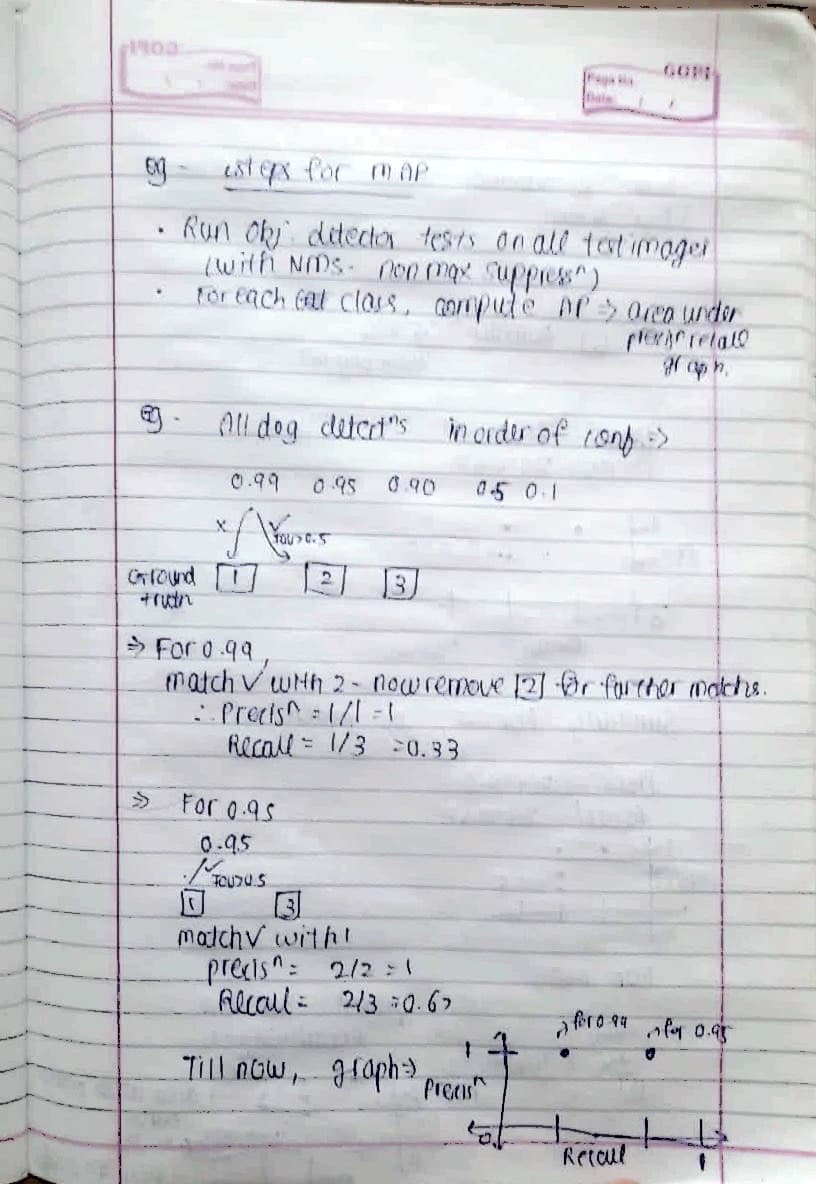 GOPI
Page No
Date: / /
Eg - steps for MAP
• Run Obj. detector tests on all test images
(with NMS - non max suppressⁿ)
• For each cat class, compute AP ⇒ area under
precisⁿ recall
graph.
Eg - All dog detectⁿs in order of conf ⇒
0.99 0.95 0.90 0.5 0.1
x ✓ IOU>0.5
Ground 1 2 3
truth
⇒ For 0.99,
match ✓ with 2 - now remove [2] for further matchs.
∴ Precisⁿ = 1/1 = 1
Recall = 1/3 = 0.33
⇒ For 0.95
0.95
✓ IOU>0.5
1 3
match ✓ with 1
precisⁿ = 2/2 = 1
Recall = 2/3 = 0.67
Till now, graph ⇒
for 0.99 for 0.95
1
Precisⁿ
0
Recall 1